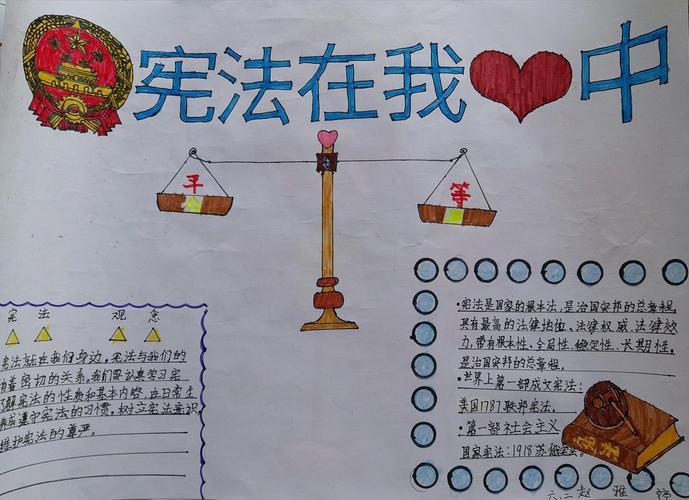 宪法在我中
平 等
宪 法 观 念
宪法就在我们身边,宪法与我们的
着密切的关系,我们要认真学习宪
了解宪法的性质和基本内容,在日常生
养成遵守宪法的习惯,树立宪法意识,
维护宪法的尊严。
•宪法是国家的根本法,是治国安邦的总章程,
具有最高的法律地位、法律权威、法律效
力,带有根本性、全局性、稳定性、长期性,
是治国安邦的总章程。
•世界上第一部成文宪法:
美国1787联邦宪法。
•第一部社会主义
国家宪法:1918苏俄
宪法
六、二 赵 雅